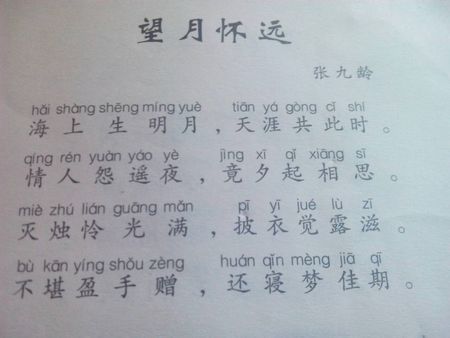 望月怀远
张九龄
hǎi shàng shēng míng yuè tiān yá gòng cǐ shí
海上生明月，天涯共此时。
qíng rén yuàn yáo yè jìng xī qǐ xiāng sī
情人怨遥夜，竟夕起相思。
miè zhú lián guāng mǎn pī yī jué lù zī
灭烛怜光满，披衣觉露滋。
bù kān yíng shǒu zèng huán qǐn mèng jiā qī
不堪盈手赠，还寝梦佳期。